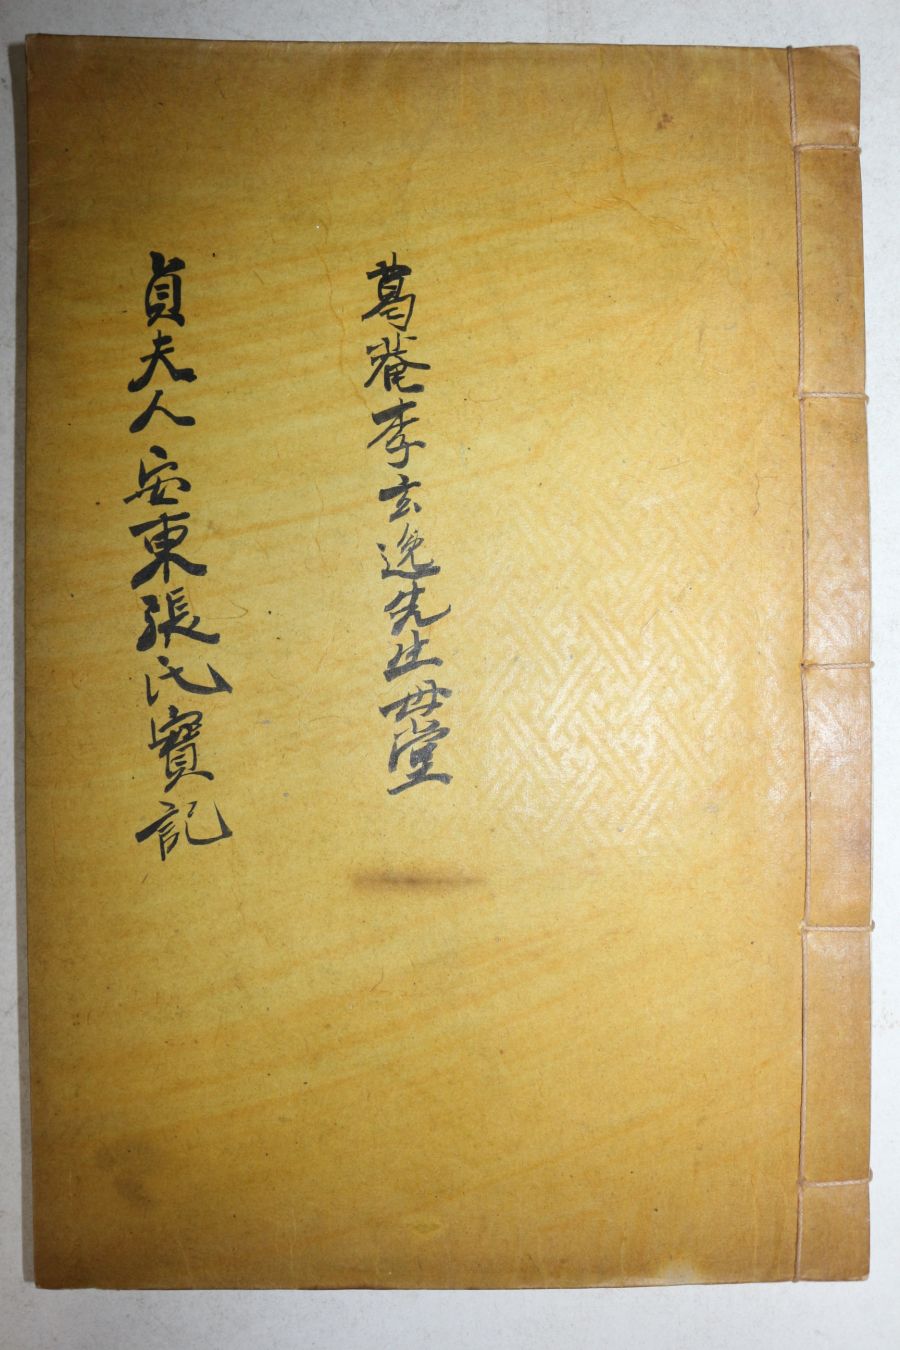 葛菴李玄逸先生母堂
貞夫人安東張氏寶記